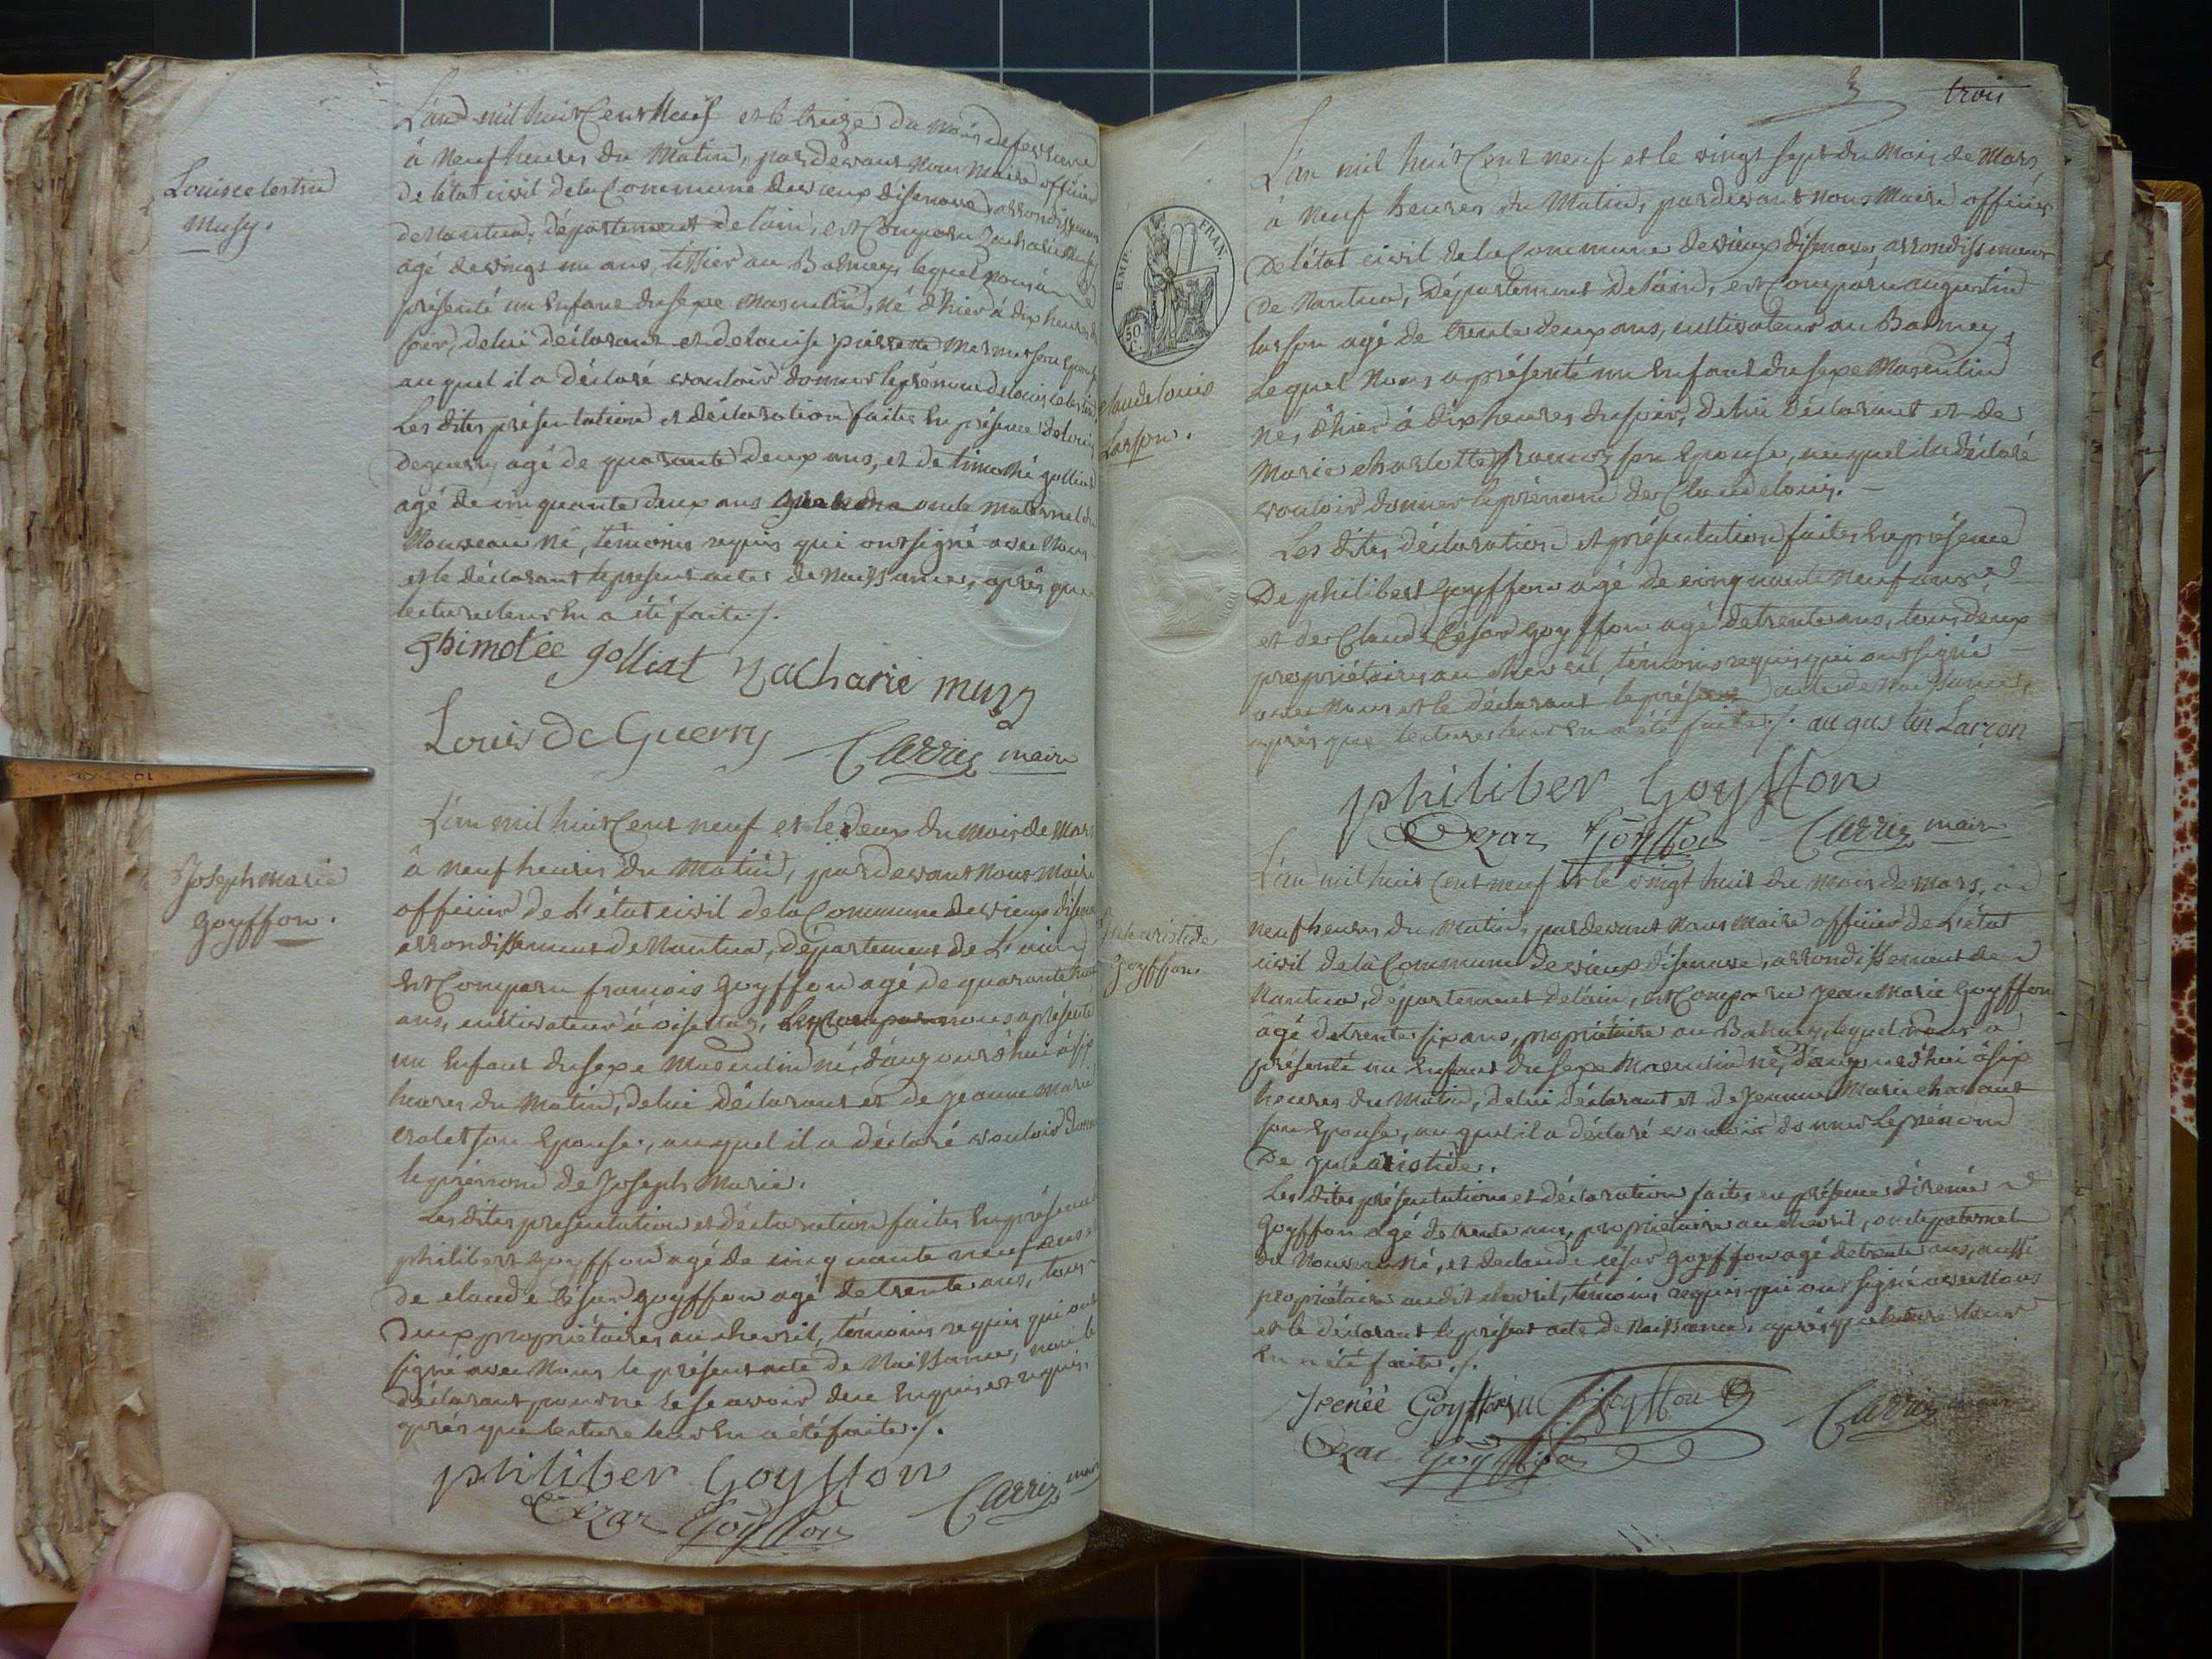 Louis celestin
Musy.
L'an mil huit Cent Neuf et le treize du mois de fevrier
à Neuf heures du Matin, pardevant Nous Maire officier
de l'état civil de la Commune de vieux disenave arrondissement
de Nantua, département de l'ain, est Comparu Zacharie Musy
agé de vingt un ans, tissier au Balmey, lequel nous a
présenté un Enfant du sexe Masculin, né d'hier à dix heures du
soir, de lui déclarant et de louise pierrette Mermet son Epouse
auquel il a déclaré vouloir donner le prénom de louis celestin
Les dites présentation et déclaration faites En présence de louis
deguerry agé de quarante deux ans, et de timothé golliat
agé de cinquante deux ans oncle maternel du
Nouveau Né, témoins requis qui ont signé avec Nous
et le déclarant le present acte de Naissance, après que
lecture leur En a été faite ./.
Thimotée golliat Zacharie musy
Louis De Guerry Carrier maire
Joseph marie
goyffon.
L'an mil huit Cent neuf et le deux du mois de Mars
à neuf heures du Matin, pardevant Nous Maire
officier de L'état civil de la Commune de vieux disenave
arrondissement de Nantua, département de L'ain
Est Comparu francois goyffon agé de quarante huit
ans, cultivateur à oisellaz, nous a présenté
un Enfant du sexe Masculin né, d'aujourd'hui à six
heures du Matin, de lui déclarant et de jeanne Marie
son Epouse, auquel il a déclaré vouloir donner
le prénom de Joseph Marie.
Les dites présentation et déclaration faites En présence
philibert goyffon agé de cinquante neuf ans et
de claude César goyffon agé de trente ans, tous
deux propriétaires au chevril, témoins requis qui ont
signé avec Nous le présent acte de Naissance, non le
déclarant pour ne le scavoir de ce Enquis et requis,
après que lecture leur En a été faite ./.
philiber Goyffon
Cezar Goyffon Carrier maire
3 trois
EMP. FRAN.
50 C.
claude louis
Larson.
L'an mil huit Cent neuf et le vingt sept du Mois de Mars,
à Neuf heures du Matin, pardevant nous Maire officier
De l'état civil de la Commune de vieux disenave, arrondissement
De Nantua, Département de l'ain, est Comparu augustin
larson agé de trente deux ans, cultivateur au Balmey,
Lequel Nous a présenté un Enfant du sexe Masculin
Né, d'hier à dix heures du soir, De lui déclarant et de
Marie charlotte son Epouse, auquel il a déclaré
vouloir donner le prénom de Claude louis. —
Les dites, déclaration et présentation faites En présence
De philibert goyffon agé de cinquante Neuf ans
et de Claude César goyffon agé de trente ans, tous deux
propriétaires au chevril, témoins requis qui ont signé —
avec Nous et le déclarant le présent acte de Naissance,
après que lecture leur En a été faite ./. augustin Larçon
philiber Goyffon
Cezar Goyffon Carrier maire
Jule aristide
goyffon.
L'an mil huit Cent neuf et le vingt huit du mois de mars, à
neuf heures du Matin, pardevant Nous Maire officier de L'état
civil de la Commune de vieux disenave, arrondissement de
Nantua, département de l'ain, est Comparu jean Marie Goyffon
âgé de trente six ans, propriétaire au Balmey, lequel Nous a
présenté un Enfant du sexe Masculin né, d'aujourd'hui à six
heures du Matin, de lui déclarant et de jeanne Marie
son Epouse, auquel il a déclaré vouloir donner le prénom
De jule aristide.
Les dites présentation et déclaration faites en présence d'irenée
Goyffon agé de trente ans, propriétaire au chevril, oncle paternel
du Nouveau Né, et de claude césar goyffon agé de trente ans, aussi
propriétaire audit chevril, témoins requis qui ont signé avec Nous
et le déclarant le présent acte de Naissance, après que lecture leur
En a été faite ./.
Irenéé Goyffon Goyffon
Cezar Goyffon Carrier maire